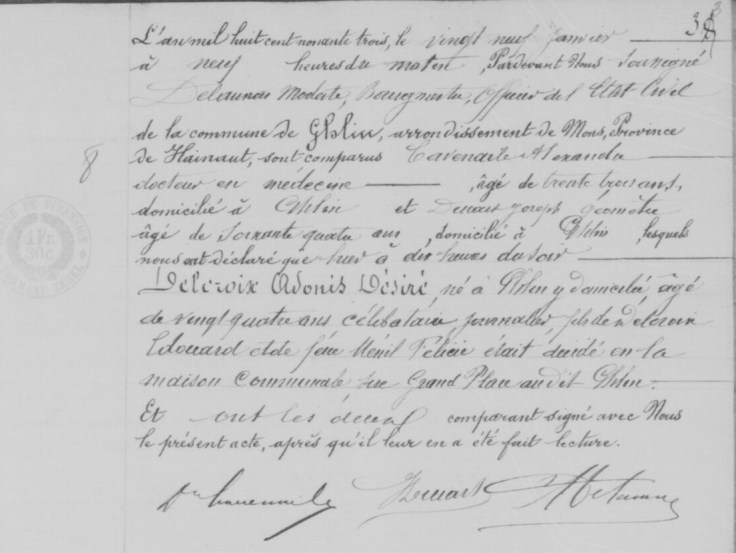 38
L'an mil huit cent nonante trois, le vingt neuf janvier
à neuf heures du matin, Pardevant Nous soussigné
Delaunois Modeste, Bourgmestre, Officier de l'Etat Civil
de la commune de Ghlin, arrondissement de Mons, Province
8
de Hainaut, sont comparus Cavenaile Alexandre
docteur en médecine, âgé de trente trois ans,
domicilié à Ghlin et Denuit Joseph géomètre
âgé de soixante quatre ans, domicilié à Ghlin, lesquels
nous ont déclaré que hier à dix heures du soir
Delcroix Adonis Désiré, né à Ghlin y domicilié, âgé
de vingt quatre ans célibataire journalier, fils de Delcroix
Edouard et de feue Ménil Félicie était décédé en la
maison Communale sise Grand Place audit Ghlin.
Et ont les deux comparant signé avec Nous
le présent acte, après qu'il leur en a été fait lecture.